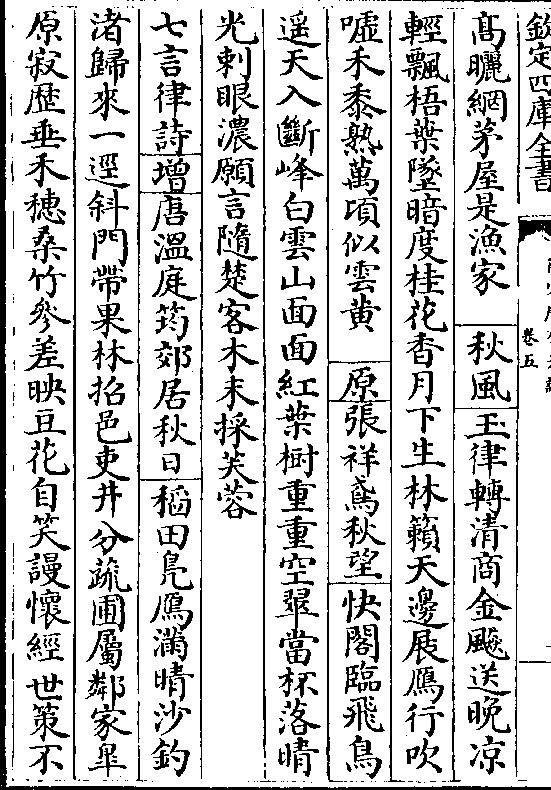 欽定四庫全書
卷五
高曬網茅屋是漁家　秋風　玉律轉清商金飇送晚凉
輕飄梧葉墜暗度桂花香月下生林籟天邊展鴈行吹
噓禾黍熟萬頃似雲黄　原張祥鳶秋望　快閣臨飛鳥
遥天入斷峰白雲山面面紅葉樹重重空翠當杯落晴
光刺眼濃願言隨楚客木末採芙蓉
七言律詩增唐溫庭筠郊居秋日　稻田鳬鴈滿晴沙釣
渚歸來一逕斜門帶果林招邑吏井分蔬圃屬鄰家臯
原寂歴垂禾穗桑竹參差映豆花自笑謾懷經世策不